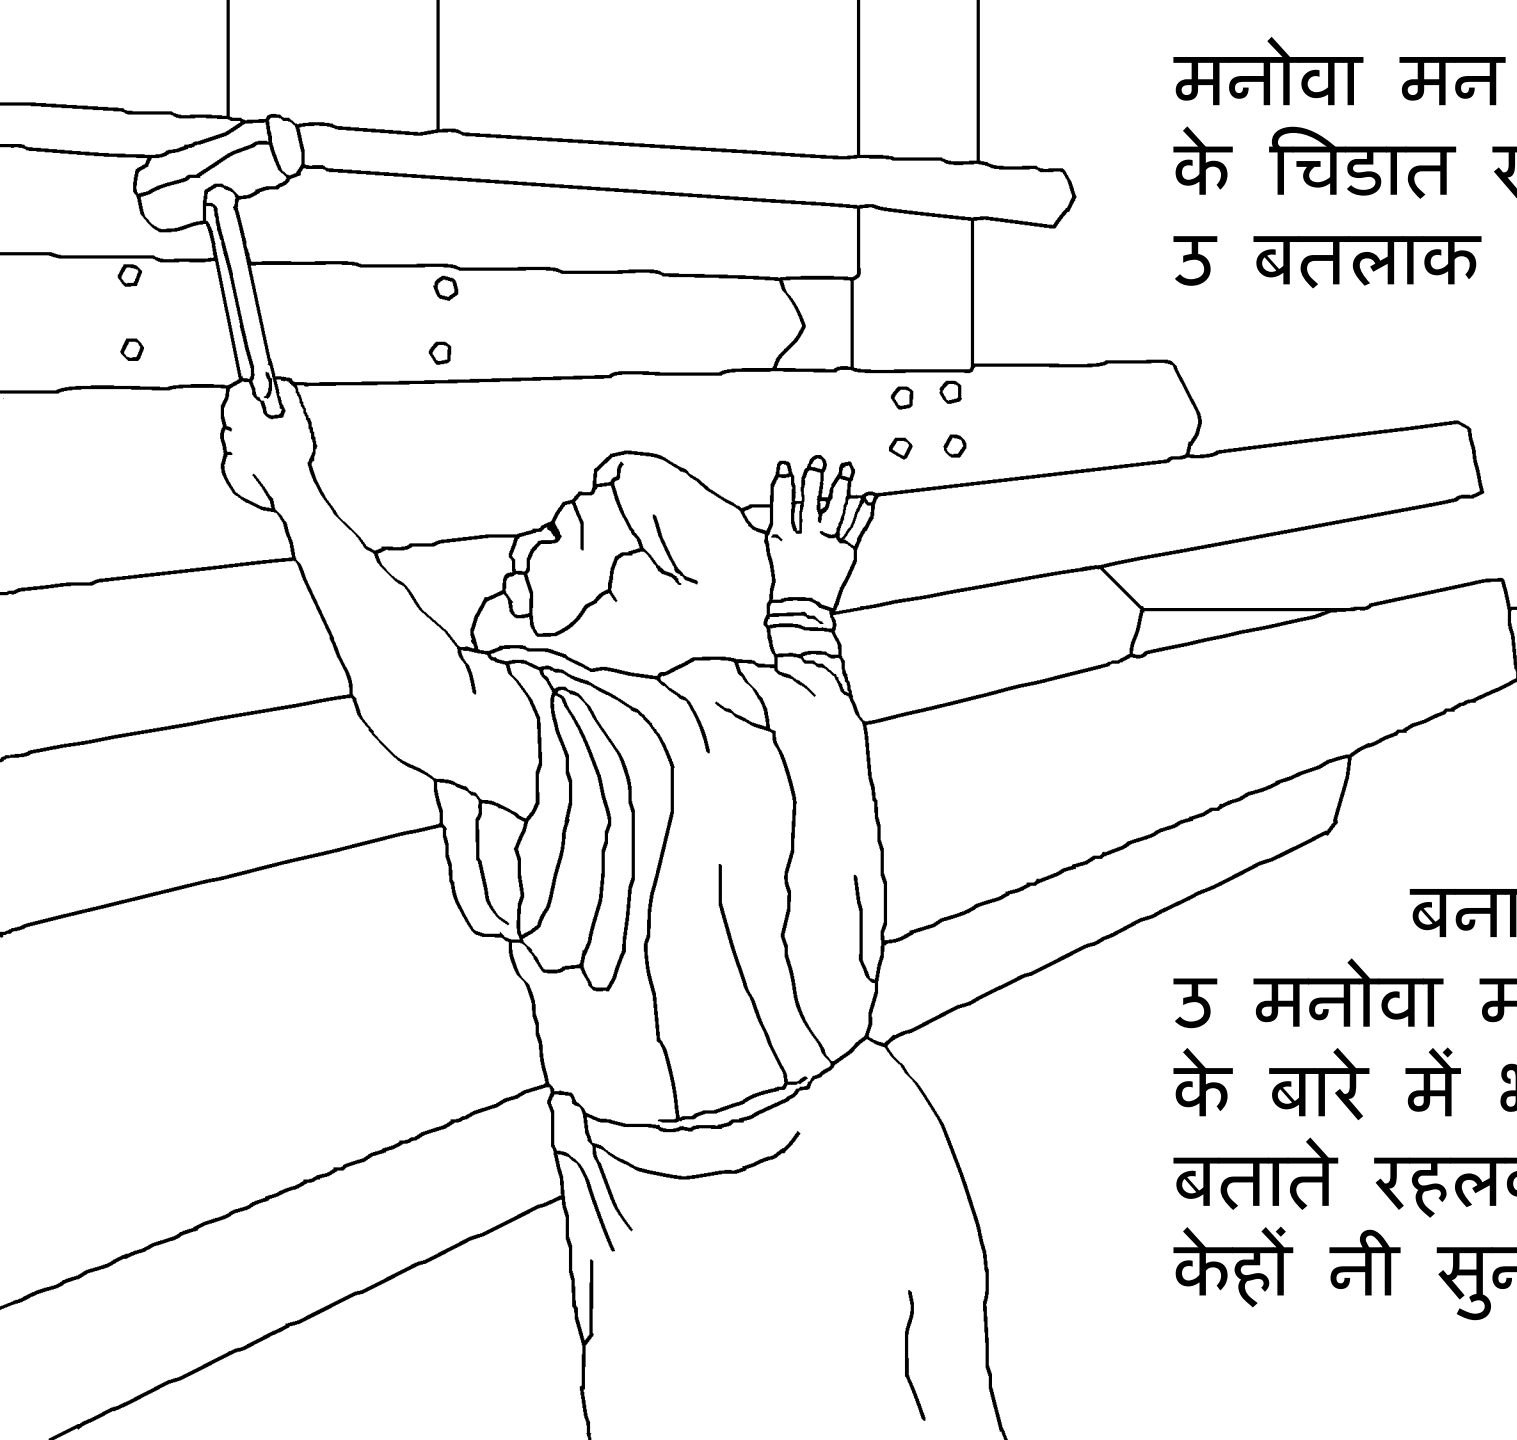 मनोवा मन
के चिडात
उ बतलाक
बना
उ मनोवा
के बारे में
बताते
केहों नी